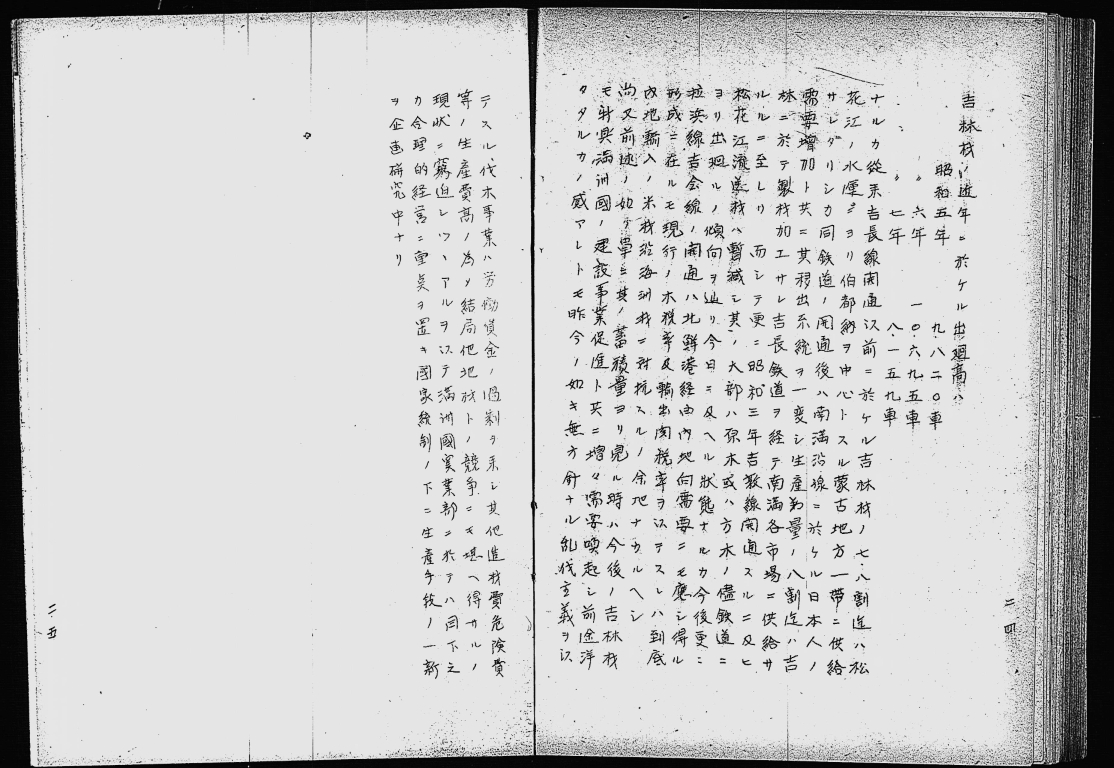 吉林材ノ近年ニ於ケル出廻高ハ
昭和五年　九、八二〇車
〃　六年　一〇、六九五車
〃　七年　八、一五九車
ナルカ従来吉長線開通以前ニ於ケル吉林材ノ七、八割迄ハ松
花江ノ水運ニヨリ伯都納ヲ中心トスル蒙古地方一帯ニ供給
サレタリシカ同鉄道ノ開通後ハ南満沿線ニ於ケル日本人ノ
需要増加ト共ニ其移出系統ヲ一変シ生産数量ノ八割迄ハ吉
林ニ於テ製材加工サレ吉長鉄道ヲ経テ南満各市場ニ供給サ
ルルニ至レリ　而シテ更ニ昭和三年吉敦線開通スルニ及ヒ
松花江流送材ハ暫減シ其ノ大部ハ原木或ハ方木ノ儘鉄道ニ
ヨリ出廻ルノ傾向ヲ辿リ今日ニ及ヘル状態ナルカ今後更ニ
拉浜線吉会線ノ開通ハ北鮮港経由内地向需要ニモ應シ得ル
形成ニ在ルモ現行ノ木税率及輸出関税率ヲ以テスレハ到底
内地輸入ノ米材沿海洲材ニ対抗スルノ余地ナカルヘシ
尚又前述ノ如ク単ニ其ノ蓄積量ヨリ見ル時ハ今後ノ吉林材
モ新興満洲國ノ建設事業促進ト共ニ増々需要喚起シ前途洋
々タルカノ感アレトモ昨今ノ如キ無方針ナル乱伐主義ヲ以
二四
テスル伐木事業ハ労働賃金ノ過剰ヲ来シ其他造材費危険費
等ノ生産費高ノ為メ結局他地材トノ競争ニモ堪ヘ得サルノ
現状ニ窮迫シツヽアルヲ以テ満洲國実業部ニ於テハ目下之
カ合理的経営ニ重点ヲ置キ國家統制ノ下ニ生産手段ノ一新
ヲ企画研究中ナリ
二五